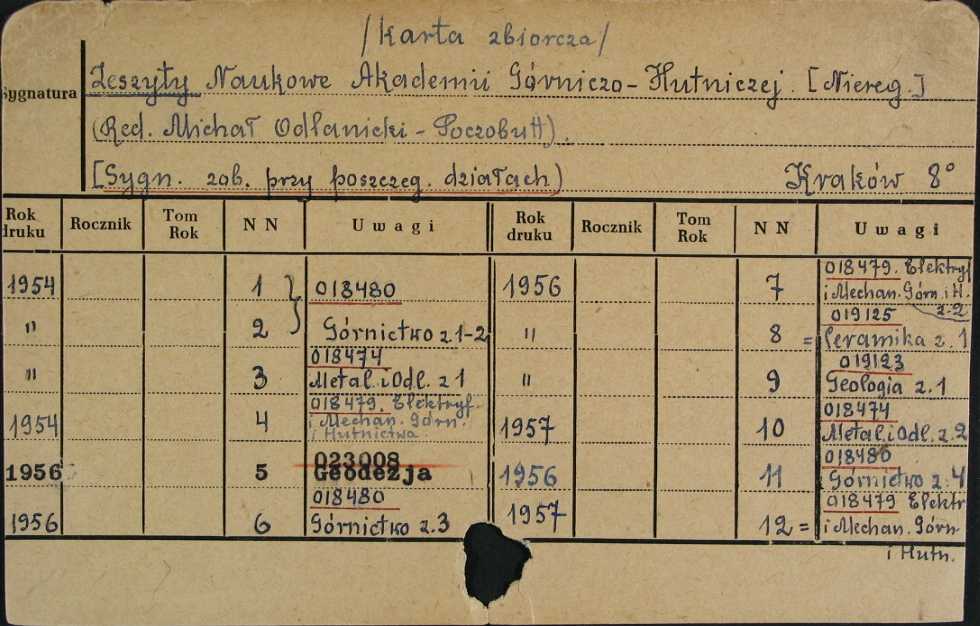 /Karta zbiorcza/
Sygnatura
Zeszyty Naukowe Akademii Górniczo-Hutniczej. [Niereg.]
(Red. Michał Odlanicki-Poczobutt).
[Sygn. zob. przy poszczeg. działach) Kraków 8°
Rok druku Rocznik Tom Rok N N Uwagi Rok druku Rocznik Tom Rok N N Uwagi
1954 1 } 018480
" 2 Górnictwo z 1-2
" 3 018474 Metal. i Odl. z 1
1954 4 018479. Elektryf. i Mechan. Górn. i Hutnictwa.
1956 5 023008 Geodezja
1956 6 018480 Górnictwo z.3
1956 7 018479. Elektryf i Mechan. Górn. i H. z-2
" 8 = 019125 Ceramika z. 1
" 9 019123 Geologia z.1
1957 10 018474 Metal. i Odl. z.2
1956 11 018480 Górnictwo z.4
1957 12 = 018479 Elektr i Mechan. Górn i Hutn.